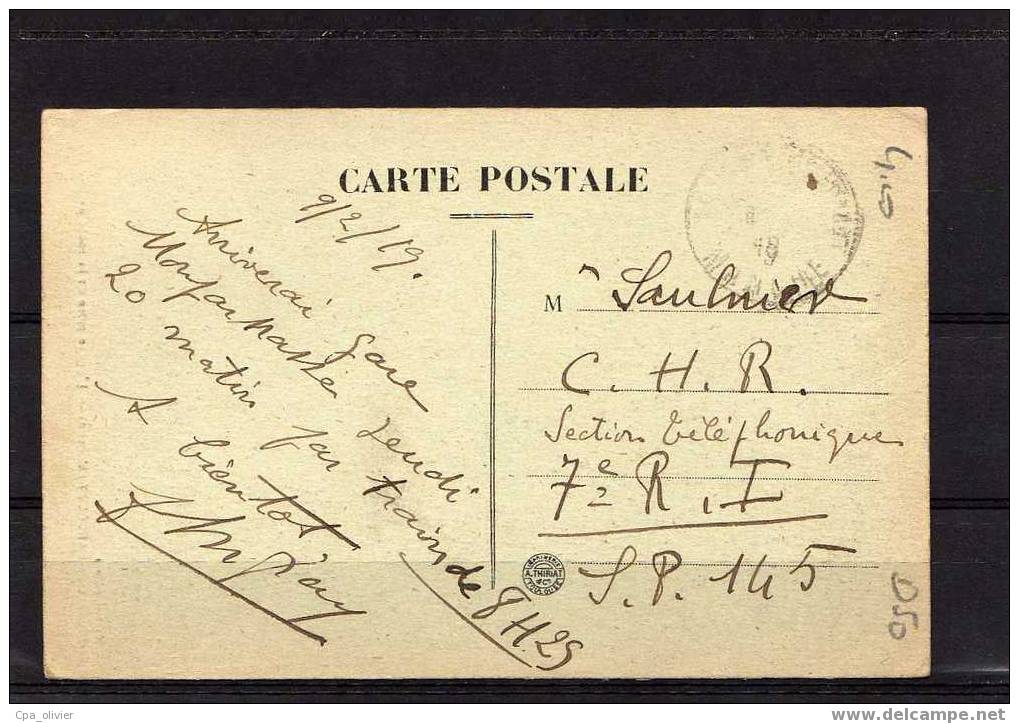 CARTE POSTALE
9/2/19.
Arriverai gare
Montparnasse Jeudi
20 matin par train de 8H25
A bientot
M r Saulnier
C. H. R.
Section Téléphonique
7e R. I
S. P. 145
A. THIRIAT
& Cie
TOULOUSE
4,10
050
Cpa_olivier
www.delcampe.net